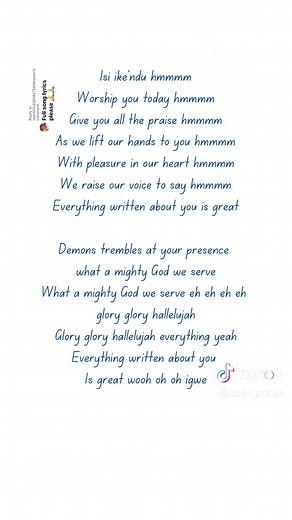 Full song lyrics
please 🙏🙏
Isi ike'ndu hmmmm
Worship you today hmmmm
Give you all the praise hmmmm
As we lift our hands to you hmmmm
With pleasure in our heart hmmmm
We raise our voice to say hmmmm
Everything written about you is great
Demons trembles at your presence
what a mighty God we serve
What a mighty God we serve eh eh eh eh
glory glory hallelujah
Glory glory hallelujah everything yeah
Everything written about you
Is great wooh oh oh igwe
TikTok